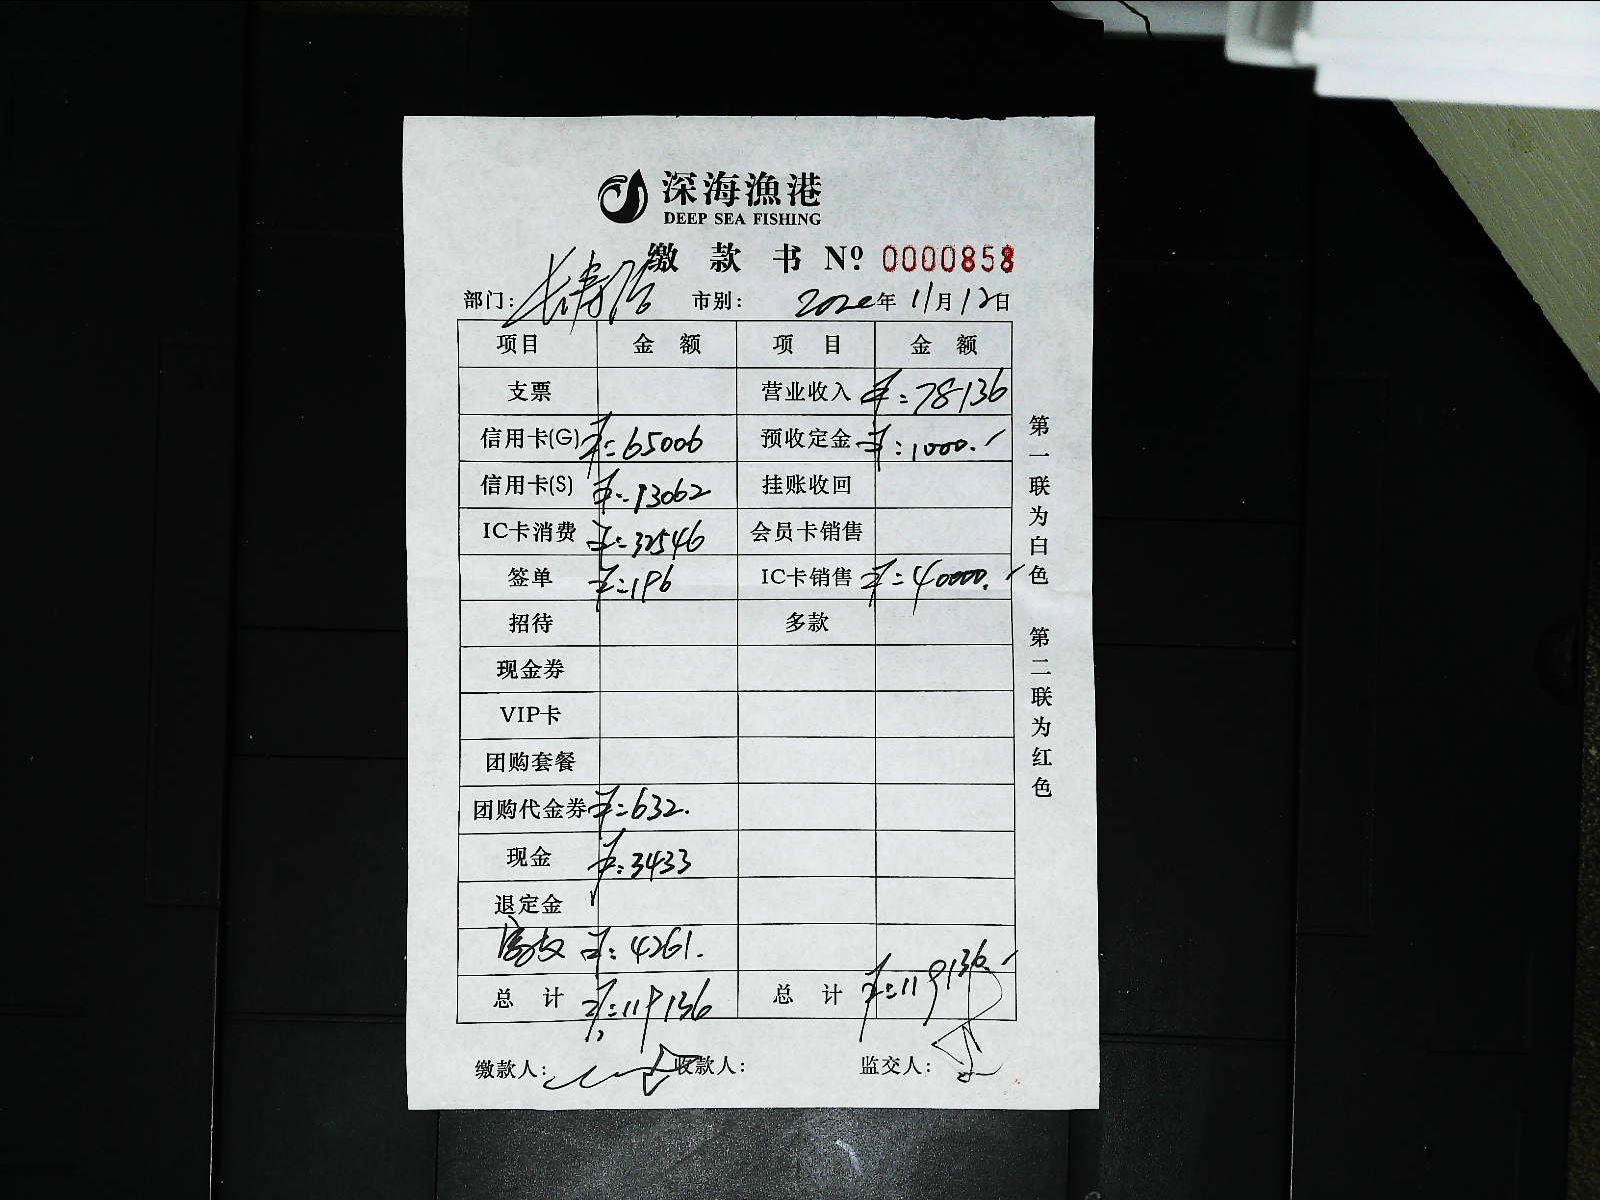 深海漁港
DEEP SEA FISHING
缴 款 书 Nº. 0000858
部门: 长寿路 市别: 2020年11月12日
项目 金 额 项 目 金 额
支票 营业收入 ¥:78136
信用卡(G) ¥:65006 预收定金 ¥:1000.
信用卡(S) ¥:13062 挂账收回
IC卡消费 ¥:32546 会员卡销售
签单 ¥:196 IC卡销售 ¥:40000.
招待 多款
现金券
VIP卡
团购套餐
团购代金券 ¥:632.
现金 ¥:3433
退定金
¥:4261.
总 计 ¥:119136 总 计 ¥:119136.
缴款人: 收款人: 监交人:
第一联为白色 第二联为红色